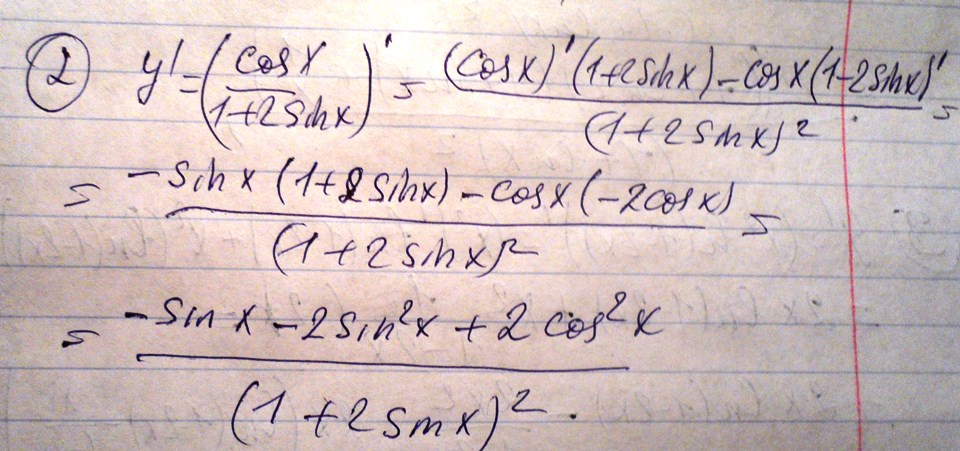 ② y' = (cos x / (1+2sin x))' = ((cos x)'(1+2sin x) - cos x(1-2sin x)') / (1+2sin x)² =
= (-sin x (1+2sin x) - cos x (-2cos x)) / (1+2sin x)² =
= (-sin x - 2sin²x + 2cos²x) / (1+2sin x)².